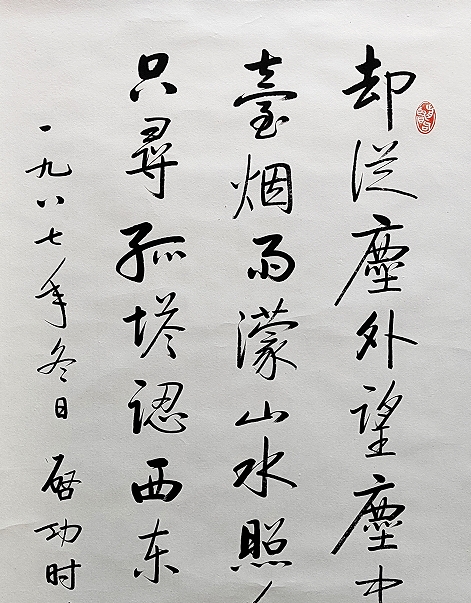 却从塵外望塵中
臺烟雨濛山水照
只尋孤塔認西东
一九八七年冬日 啓功时